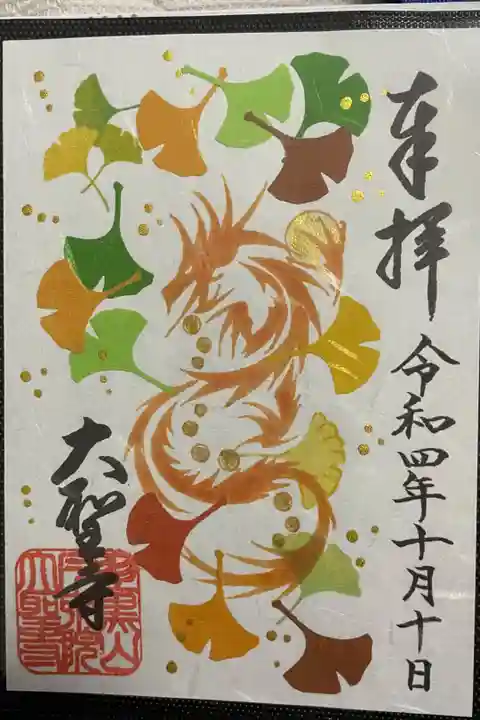 奉拝
令和四年十月十日
大聖寺